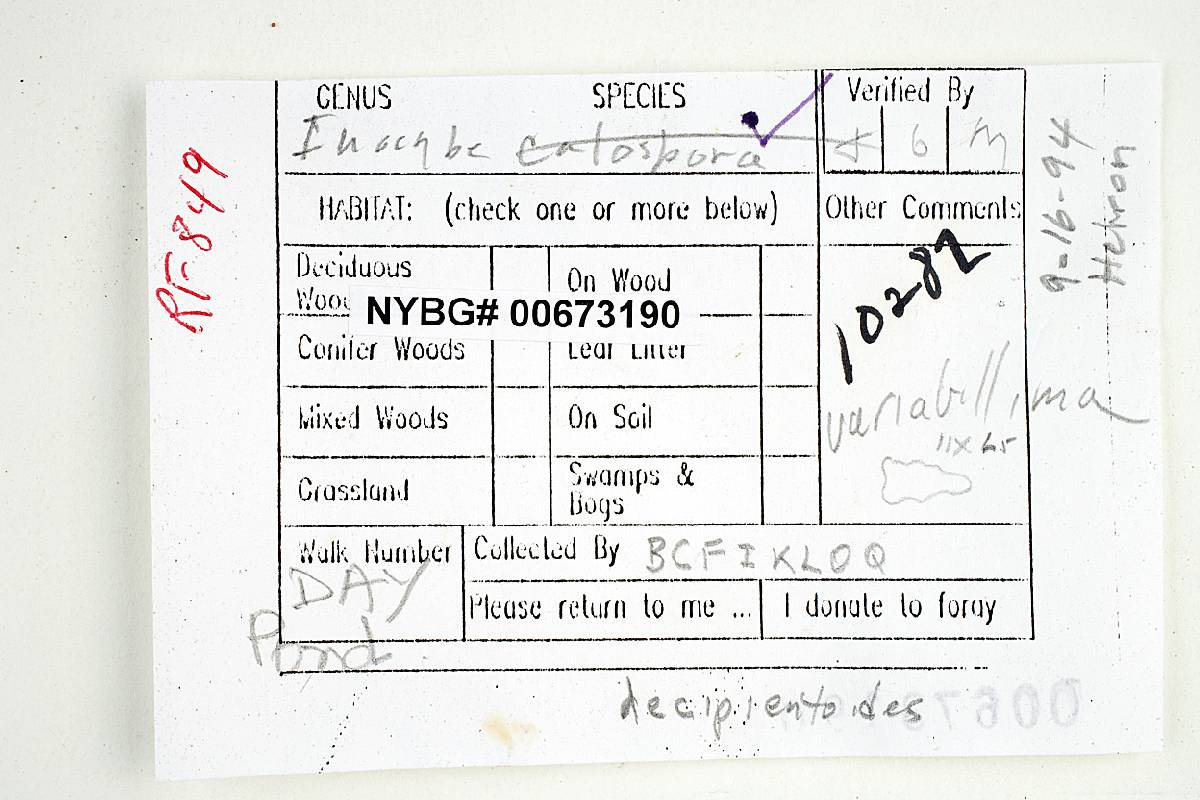 GENUS SPECIES Verified By
Inocybe calospora J G M
HABITAT: (check one or more below) Other Comments
Deciduous
On Wood
NYBG# 00673190
Conifer Woods Leaf Litter
Mixed Woods On Soil
Grassland Swamps &
Bogs
10282
variabillima
11x65
Walk Number Collected By BCFIKLOQ
DAY
Pond
Please return to me ... I donate to foray
decipientoides
RF-849
9-16-94
Hebron